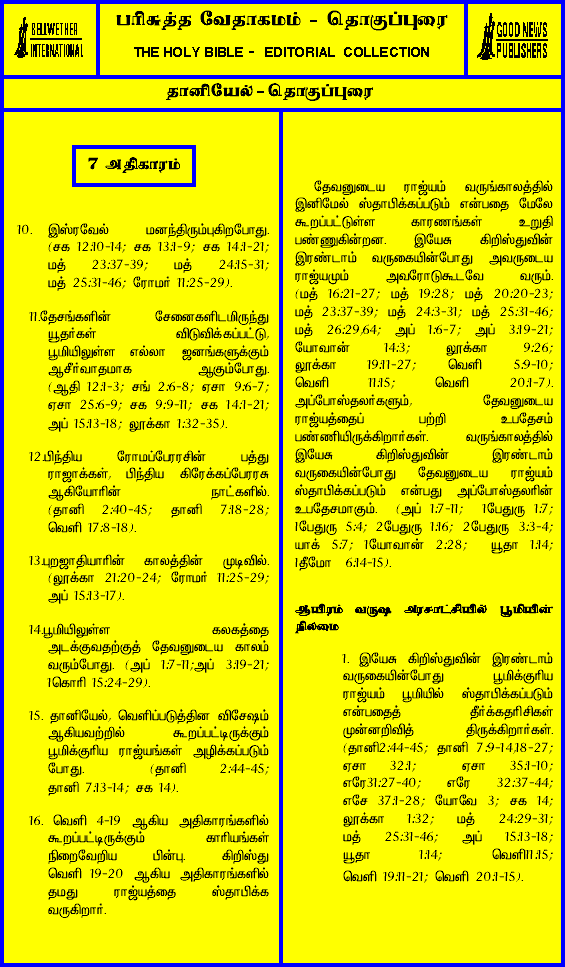 BELLWETHER
INTERNATIONAL
பரிசுத்த வேதாகமம் - தொகுப்புரை
THE HOLY BIBLE - EDITORIAL COLLECTION
GOOD NEWS
PUBLISHERS
தானியேல் - தொகுப்புரை
7 அதிகாரம்
10. இஸ்ரவேல் மனந்திரும்புகிறபோது.
(சக 12:10-14; சக 13:1-9; சக 14:1-21;
மத் 23:37-39; மத் 24:15-31;
மத் 25:31-46; ரோமர் 11:25-29).
11.தேசங்களின் சேனைகளிடமிருந்து
யூதர்கள் விடுவிக்கப்பட்டு,
பூமியிலுள்ள எல்லா ஜனங்களுக்கும்
ஆசீர்வாதமாக ஆகும்போது.
(ஆதி 12:1-3; சங் 2:6-8; ஏசா 9:6-7;
ஏசா 25:6-9; சக 9:9-11; சக 14:1-21;
அப் 15:13-18; லூக்கா 1:32-35).
12.பிந்திய ரோமப்பேரரசின் பத்து
ராஜாக்கள், பிந்திய கிரேக்கப்பேரரசு
ஆகியோரின் நாட்களில்.
(தானி 2:40-45; தானி 7:18-28;
வெளி 17:8-18).
13.புறஜாதியாரின் காலத்தின் முடிவில்.
(லூக்கா 21:20-24; ரோமர் 11:25-29;
அப் 15:13-17).
14.பூமியிலுள்ள கலகத்தை
அடக்குவதற்குத் தேவனுடைய காலம்
வரும்போது. (அப் 1:7-11;அப் 3:19-21;
1கொரி 15:24-29).
15. தானியேல், வெளிப்படுத்தின விசேஷம்
ஆகியவற்றில் கூறப்பட்டிருக்கும்
பூமிக்குரிய ராஜ்யங்கள் அழிக்கப்படும்
போது. (தானி 2:44-45;
தானி 7:13-14; சக 14).
16. வெளி 4-19 ஆகிய அதிகாரங்களில்
கூறப்பட்டிருக்கும் காரியங்கள்
நிறைவேறிய பின்பு. கிறிஸ்து
வெளி 19-20 ஆகிய அதிகாரங்களில்
தமது ராஜ்யத்தை ஸ்தாபிக்க
வருகிறார்.
தேவனுடைய ராஜ்யம் வருங்காலத்தில்
இனிமேல் ஸ்தாபிக்கப்படும் என்பதை மேலே
கூறப்பட்டுள்ள காரணங்கள் உறுதி
பண்ணுகின்றன. இயேசு கிறிஸ்துவின்
இரண்டாம் வருகையின்போது அவருடைய
ராஜ்யமும் அவரோடுகூடவே வரும்.
(மத் 16:21-27; மத் 19:28; மத் 20:20-23;
மத் 23:37-39; மத் 24:3-31; மத் 25:31-46;
மத் 26:29,64; அப் 1:6-7; அப் 3:19-21;
யோவான் 14:3; லூக்கா 9:26;
லூக்கா 19:11-27; வெளி 5:9-10;
வெளி 11:15; வெளி 20:1-7).
அப்போஸ்தலர்களும், தேவனுடைய
ராஜ்யத்தைப் பற்றி உபதேசம்
பண்ணியிருக்கிறார்கள். வருங்காலத்தில்
இயேசு கிறிஸ்துவின் இரண்டாம்
வருகையின்போது தேவனுடைய ராஜ்யம்
ஸ்தாபிக்கப்படும் என்பது அப்போஸ்தலரின்
உபதேசமாகும். (அப் 1:7-11; 1பேதுரு 1:7;
1பேதுரு 5:4; 2பேதுரு 1:16; 2பேதுரு 3:3-4;
யாக் 5:7; 1யோவான் 2:28; யூதா 1:14;
1தீமோ 6:14-15).
ஆயிரம் வருஷ அரசாட்சியில் பூமியின்
நிலைமை
1. இயேசு கிறிஸ்துவின் இரண்டாம்
வருகையின்போது பூமிக்குரிய
ராஜ்யம் பூமியில் ஸ்தாபிக்கப்படும்
என்பதைத் தீர்க்கதரிசிகள்
முன்னறிவித் திருக்கிறார்கள்.
(தானி2:44-45; தானி 7:9-14,18-27;
ஏசா 32:1; ஏசா 35:1-10;
எரே31:27-40; எரே 32:37-44;
எசே 37:1-28; யோவே 3; சக 14;
லூக்கா 1:32; மத் 24:29-31;
மத் 25:31-46; அப் 15:13-18;
யூதா 1:14; வெளி11:15;
வெளி 19:11-21; வெளி 20:1-15).